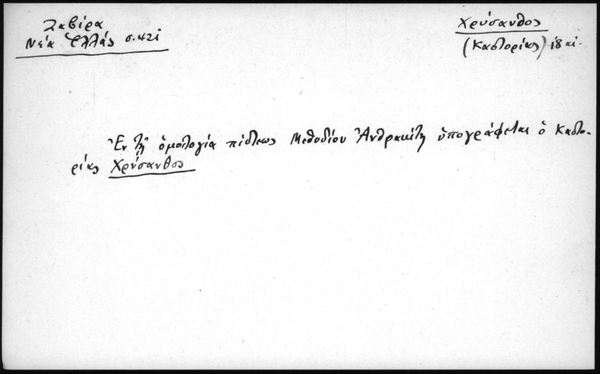 Ζαβίρα
Νέα Ἑλλάς σ. 421
Χρύσανθος
(Καστορίας) ιδ αἰ.
Ἐν τῇ ὁμολογίᾳ πίστεως Μεθοδίου Ἀνθρακίτη ὑπογράφεται ὁ Καστο-
ρίας Χρύσανθος